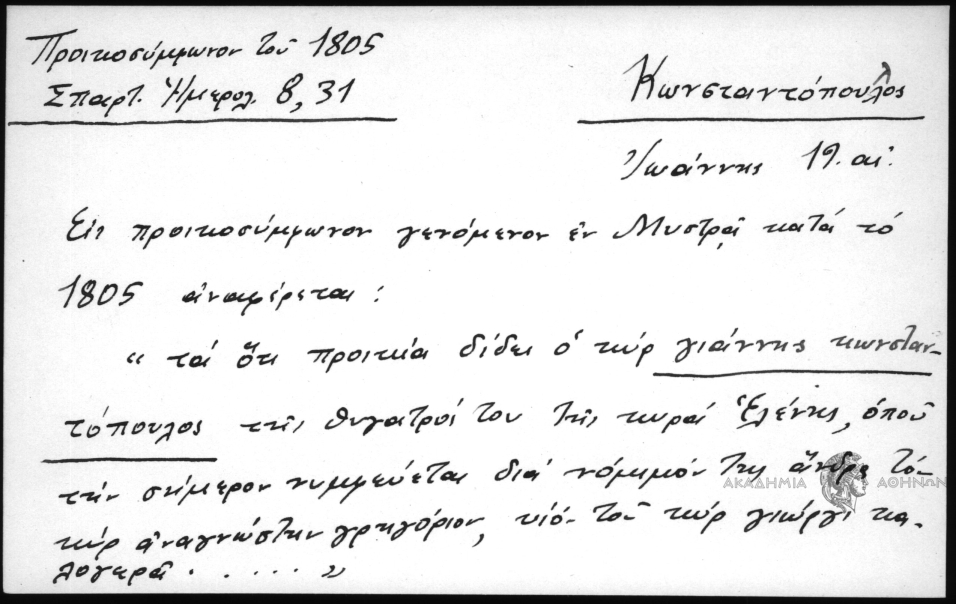 Προικοσύμφωνον τοῦ 1805
Σπαρτ. Ἡμερολ. 8, 31
Κωνσταντόπουλος
Ἰωάννης 19. αἰ.
Εἰς προικοσύμφωνον γενόμενον ἐν Μυστρᾷ κατά τό
1805 ἀναφέρεται :
“ τά ὅτι προικία δίδει ὁ κύρ γιάννης κωνσταν-
τόπουλος τῆς θυγατρός του τῆς κυρᾶς Ἑλένης, ὁποῦ
τήν σήμερον νυμφεύεται διά νόμιμόν της ἄνδρα τόν
κύρ ἀναγνώστην γρηγόριον, υἱόν τοῦ κύρ γιώργι κα-
λογερᾶ . . . . . . ”
ΑΚΑΔΗΜΙΑ ΑΘΗΝΩΝ